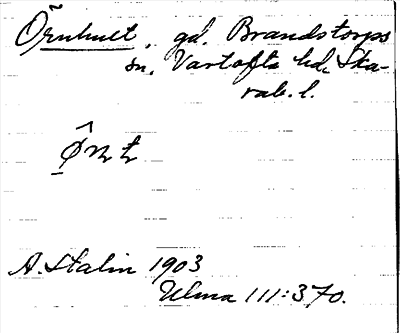 Örnhult, gd. Brandstorps
sn. Vartofta hd. Ska-
rab. l.
A. Stalin 1903
Ulma 111:370.